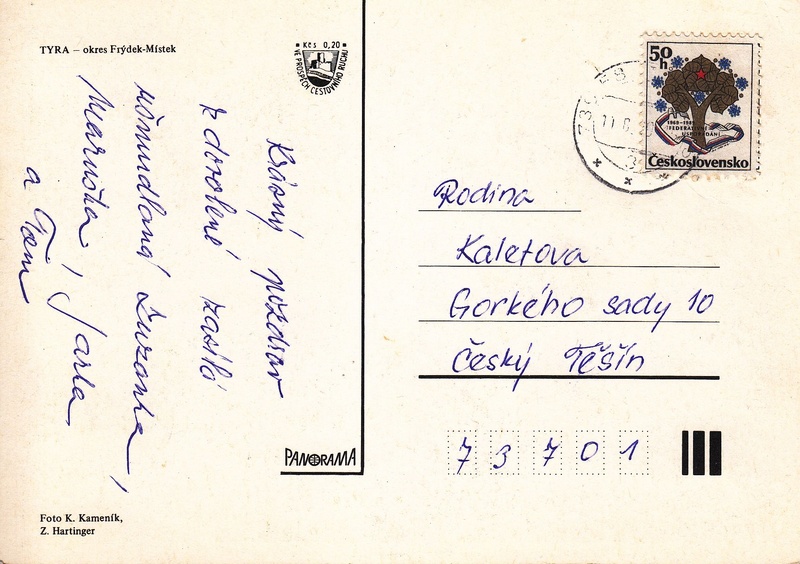 TYRA – okres Frýdek-Místek
Kčs 0,20
VE PROSPĚCH CESTOVNÍHO RUCHU
Krásný pozdrav
z dovolené zasílá
Zuzanka,
Maruška, Jarka,
a Tom
PANORAMA
Foto K. Kameník,
Z. Hartinger
50 h
FEDERATIVNÍ
USPOŘÁDÁNÍ
Československo
Rodina
Kaletova
Gorkého sady 10
Český Těšín
73701